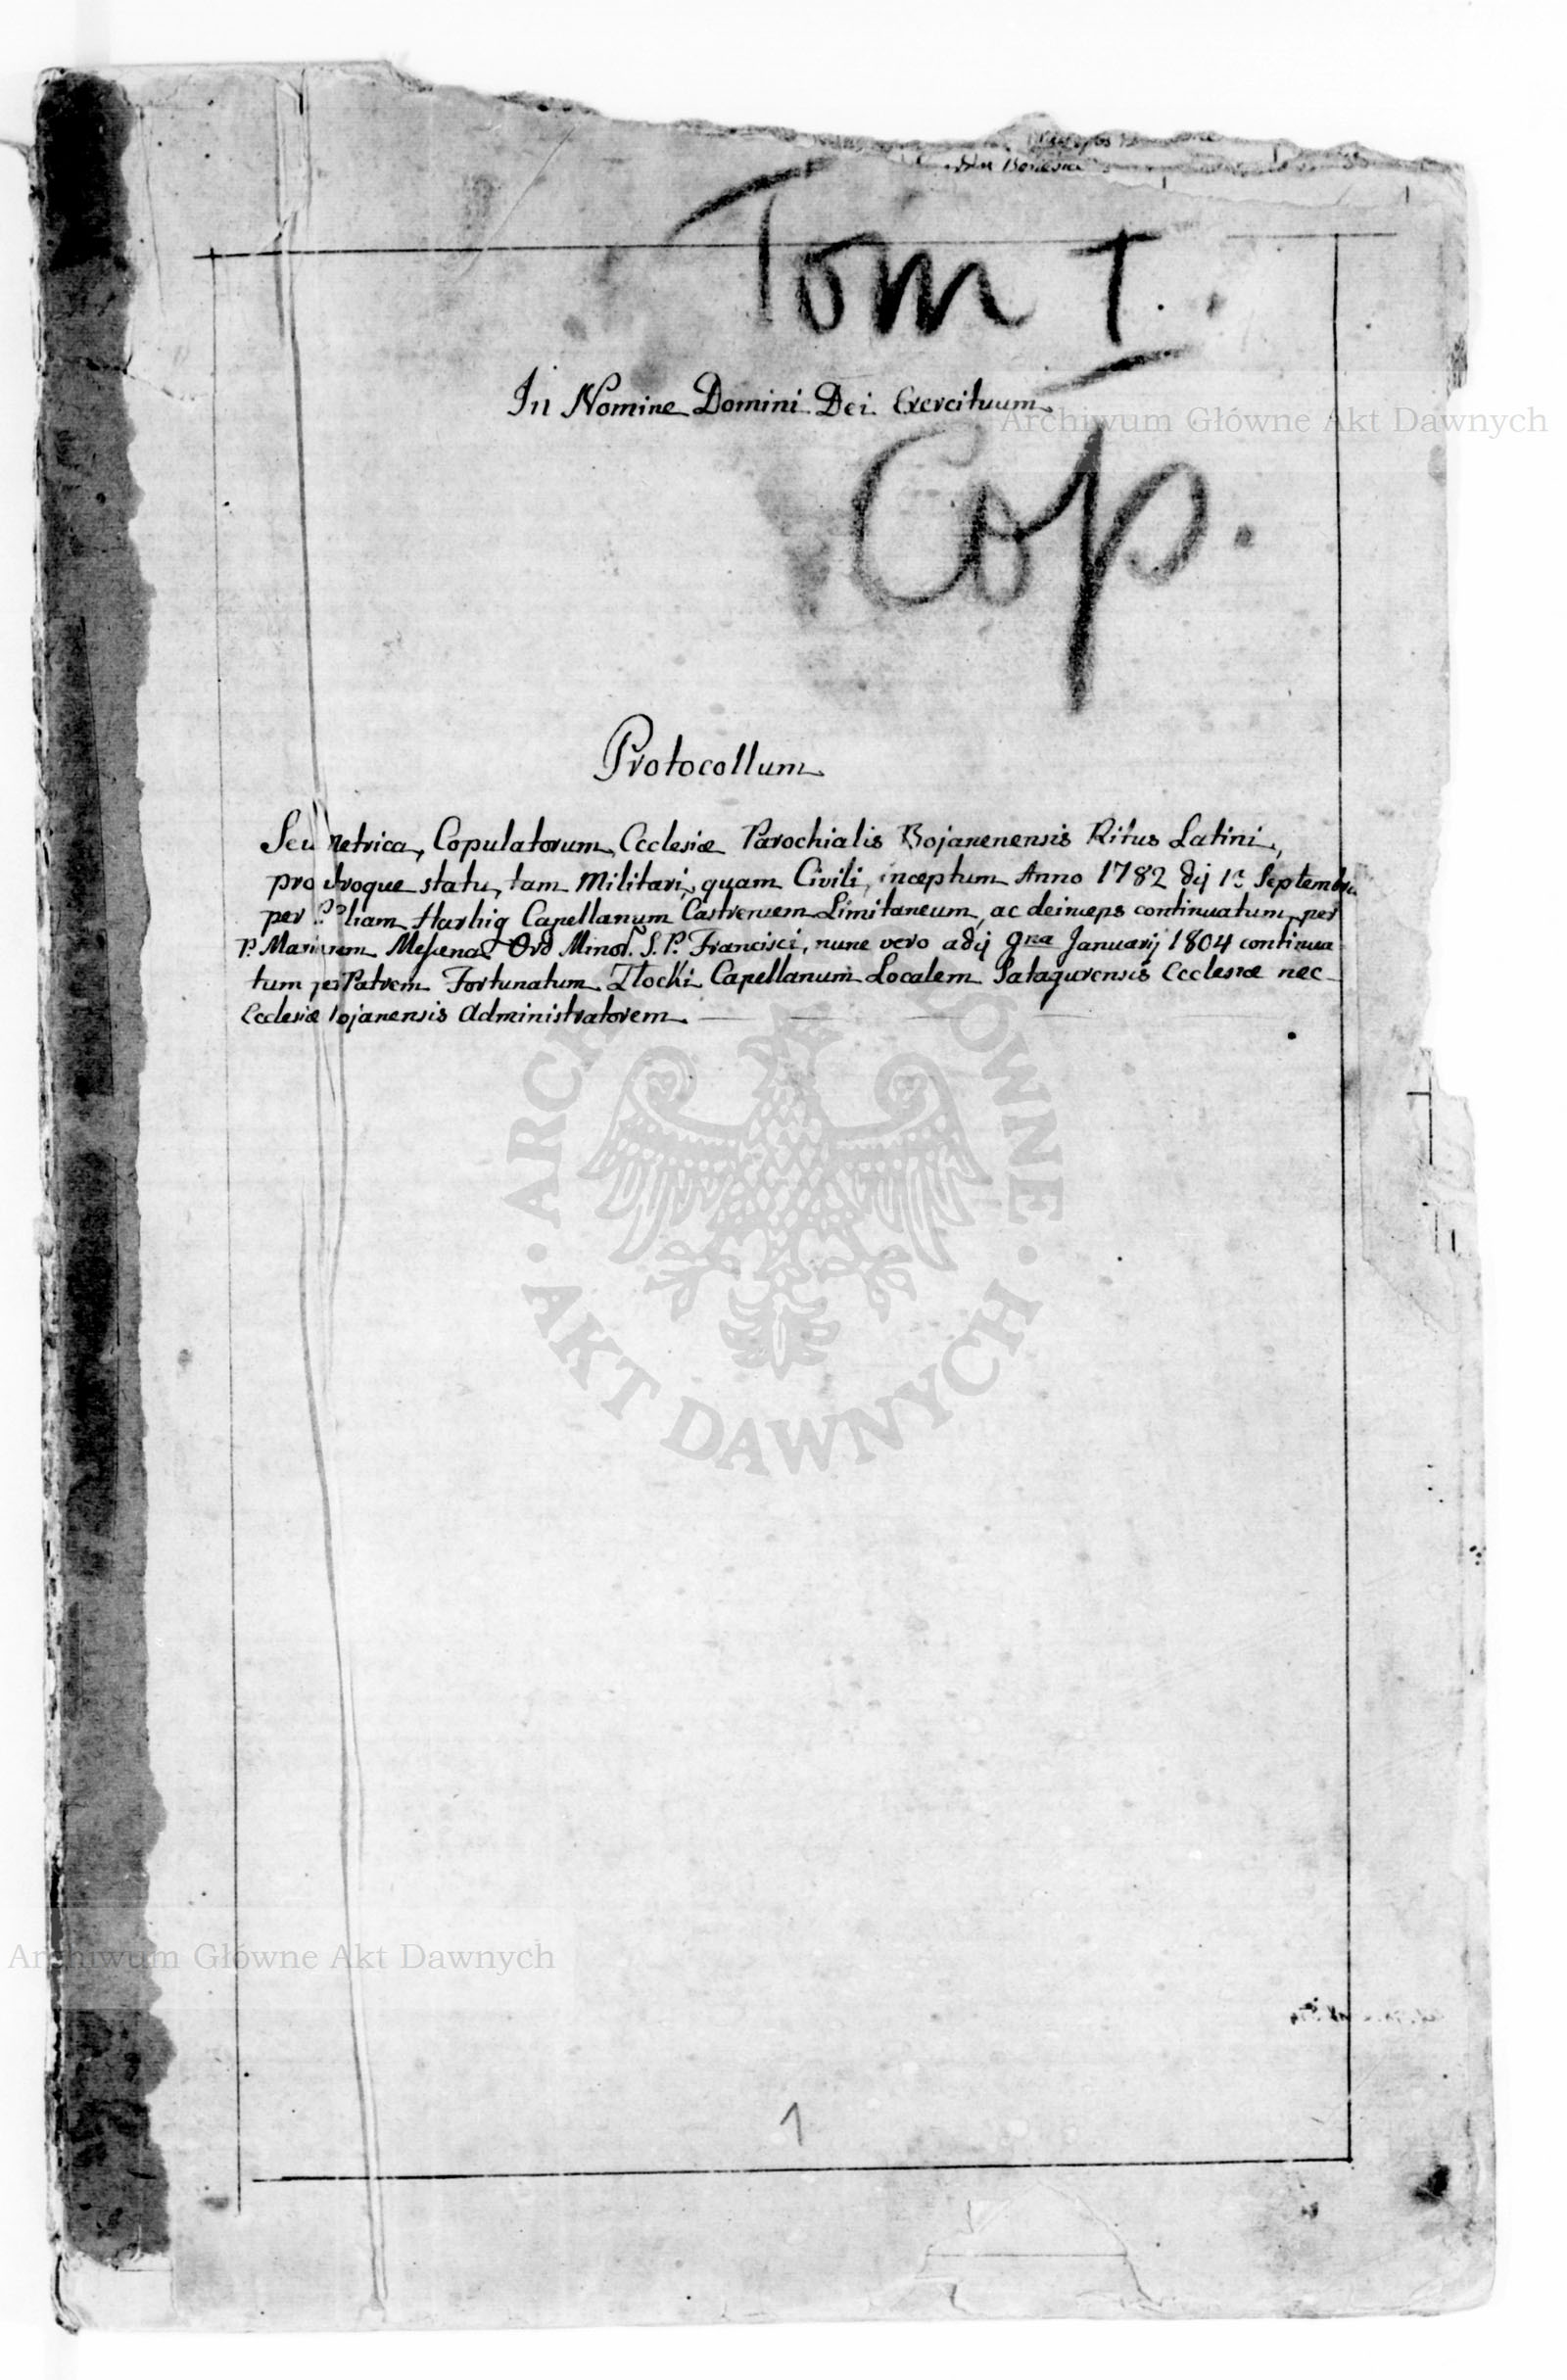 Tom I.
In Nomine Domini Dei Exercituum
Archiwum Główne Akt Dawnych
Cop.
Protocollum
Seu Metrica, Copulatorum, Ecclesiæ Parochialis Bojanenensis Ritus Latini,
pro utroque statu, tam Militari, quam Civili, inceptum Anno 1782 dij 1ª Septembris
per Harbig Capellanum Castrensem Limitaneum, ac deinceps continuatum, per
P. Ord Minor. S. P. Francisci, nunc vero a dij 9na Januarij 1804 continua
tum per Patrem Fortunatum Tlocki Capellanum Localem Satagurensis Ecclesiæ nec
Ecclesiæ Bojanensis Administratorem.
ARCHIWUM GŁÓWNE AKT DAWNYCH
Archiwum Główne Akt Dawnych
1